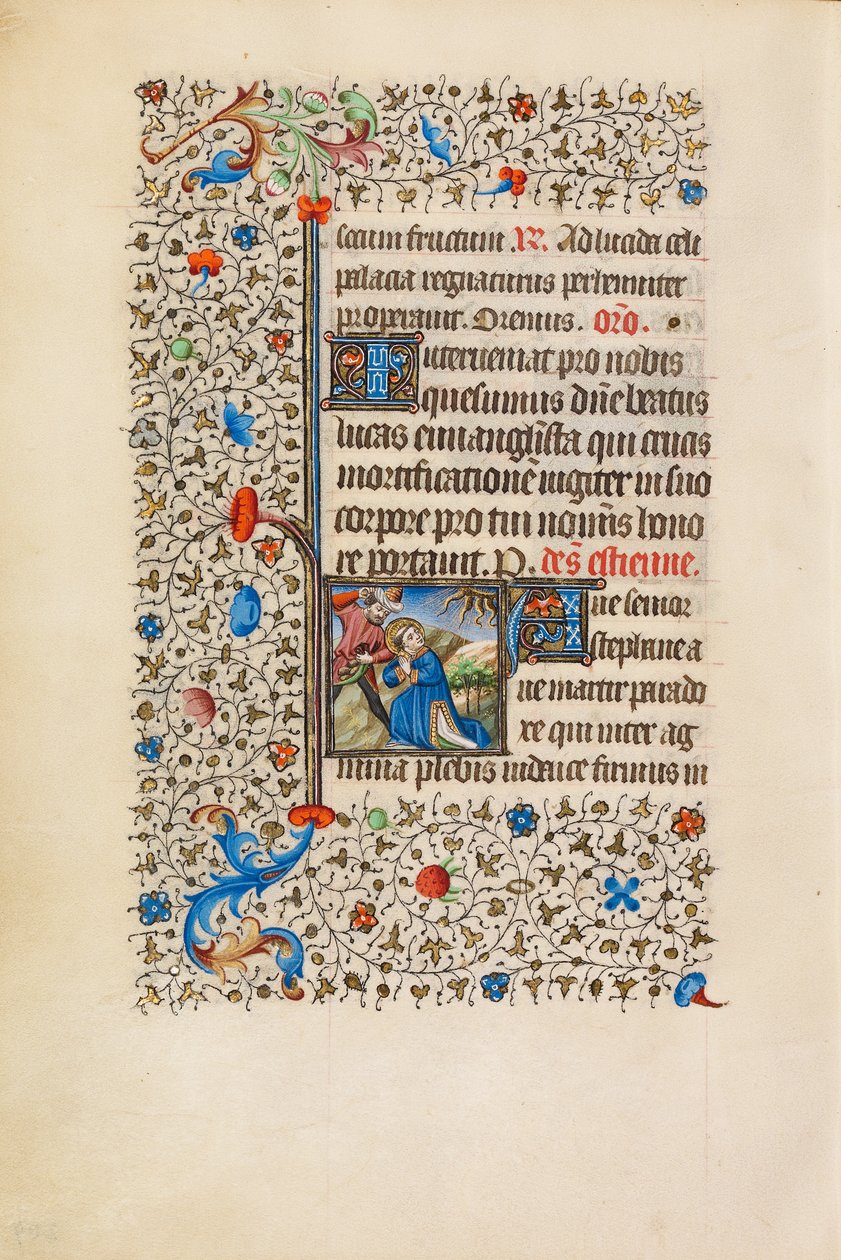 sotium fructum. R. Ad lucida celi
palacia regnaturus perhenniter
properauit. Oremus. orō.
Interueniat pro nobis
quesumus dn̄e beatus
lucas euuangl̄ista qui crucis
mortificationē iugiter in suo
corpore pro tui nom̄is hono
re portauit. P. de s̄ estienne.
Aue senior
stephane a
ue martir parado
xe qui inter ag
mina plebis iudaice firmus in